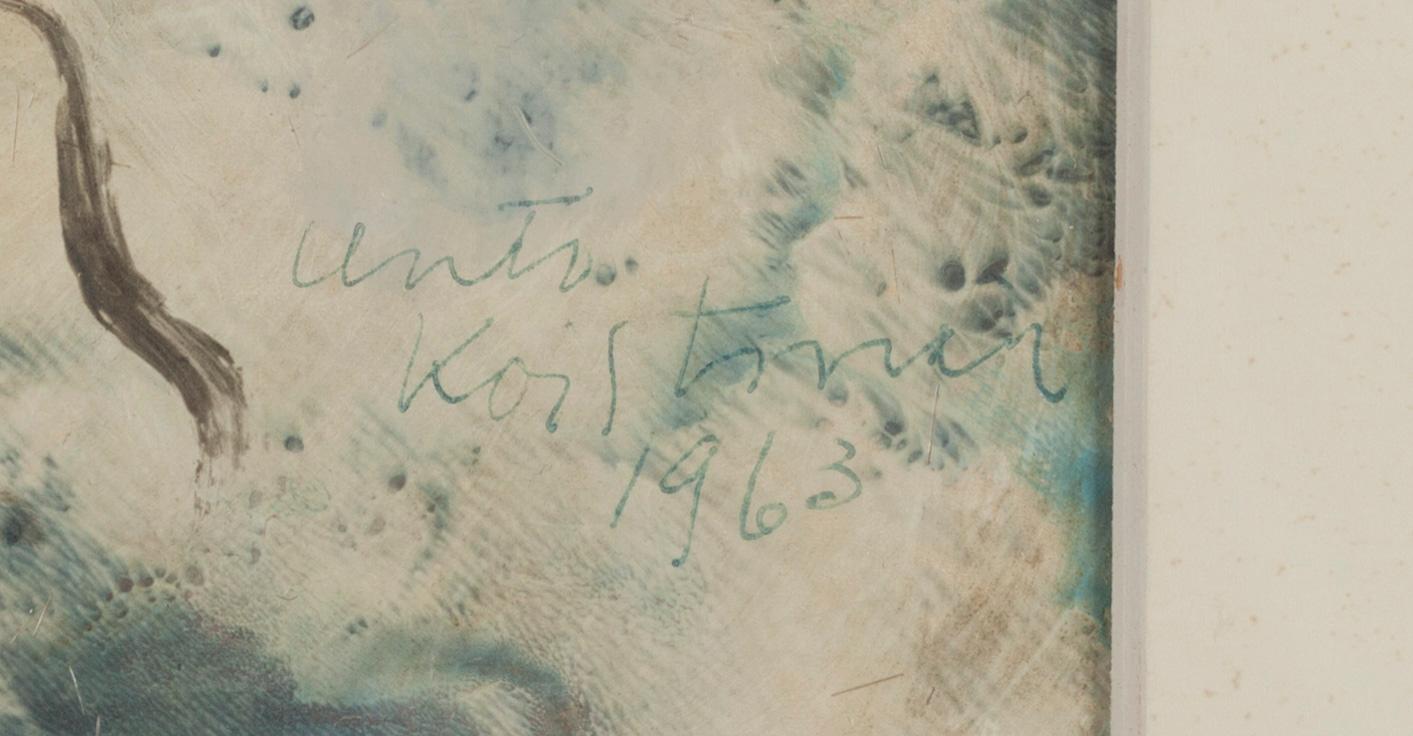 Unto
Koistinen
1963